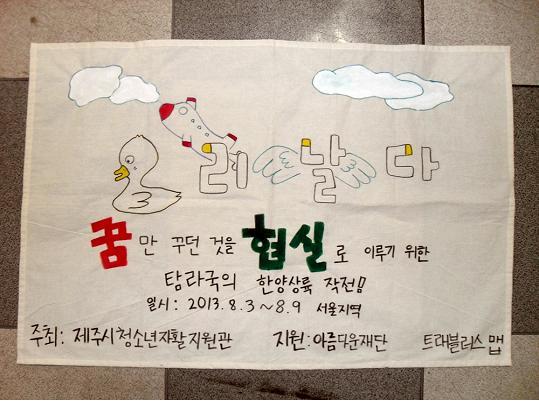 리 날다
꿈만 꾸던 것을 현실로 이루기 위한
탐라국의 한양상륙 작전!!
일시: 2013.8.3~8.9 서울지역
주최: 제주시청소년자활지원관 지원:아름다운재단 트래블러스맵